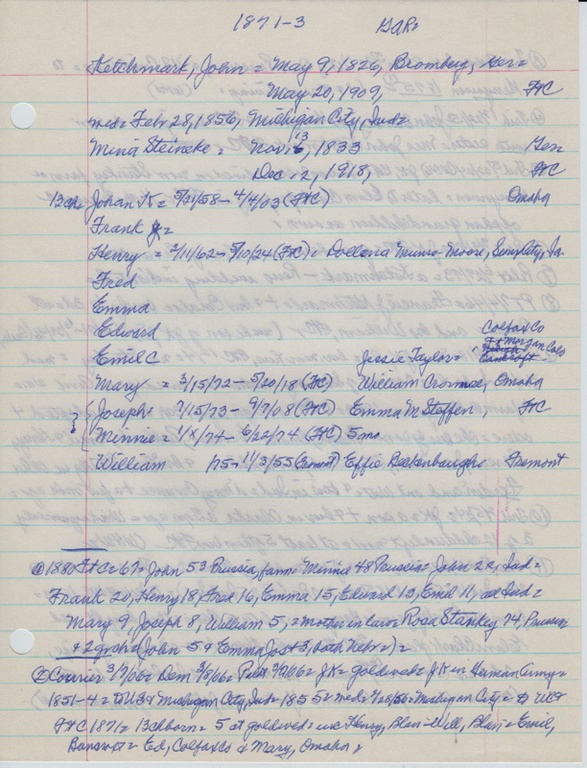 1871-3 GAR=
Ketchmark, John = May 9, 1826, Bromberg, Ger =
May 20, 1909, FtC
med = Feb 28, 1856, Michigan City, Ind =
Mina Steineke = Nov 13, 1833 Ger
Dec 12, 1918, FtC
13 ch = Johan K = 5/31/58 - 4/4/03 (FtC) Omaha
Frank =
Henry = 2/11/62 - 5/10/24 (FtC) = Dollena Munro-Moore, City, Ia.
Fred
Emma
Edward Colfax Co
Emil C Jessie Taylor = Ft Morgan Colo
Mary = 3/15/72 - 5/20/18 (FtC) William, Omaha
? Joseph = 7/15/73 - 9/7/08 (FtC) Emma M Steffen, FtC
Minnie = 1/x/74 - 6/22/74 (FtC) 5 mo
William /75 - 11/3/55 (Fremont) Effie Fremont
① 1880 FtC = 67 = John 53 Prussia, farm = Minnie 48 Prussia = John 22, Ind =
Frank 20, Henry 18, Fred 16, Emma 15, Edward 13, Emil 11, all Ind =
Mary 9, Joseph 8, William 5, = mother in law = Rose Stanky 74, Prussia
& 2 grch = (John 5 & Emma Jost 3, both Nebr =) =
② Courier 3/7/06 = Dem 3/8/06 = Pilot 3/7/06 = JK = goldwed = JK in German Army =
1851-4 = to US & Michigan City, Ind = 1855 = med = 2/28/56 = Michigan City = to
FtC 1871 = 13 ch born = 5 at goldwed = Henry, Blair = Will, Blair = Emil,
Bancroft = Ed, Colfax Co & Mary, Omaha =